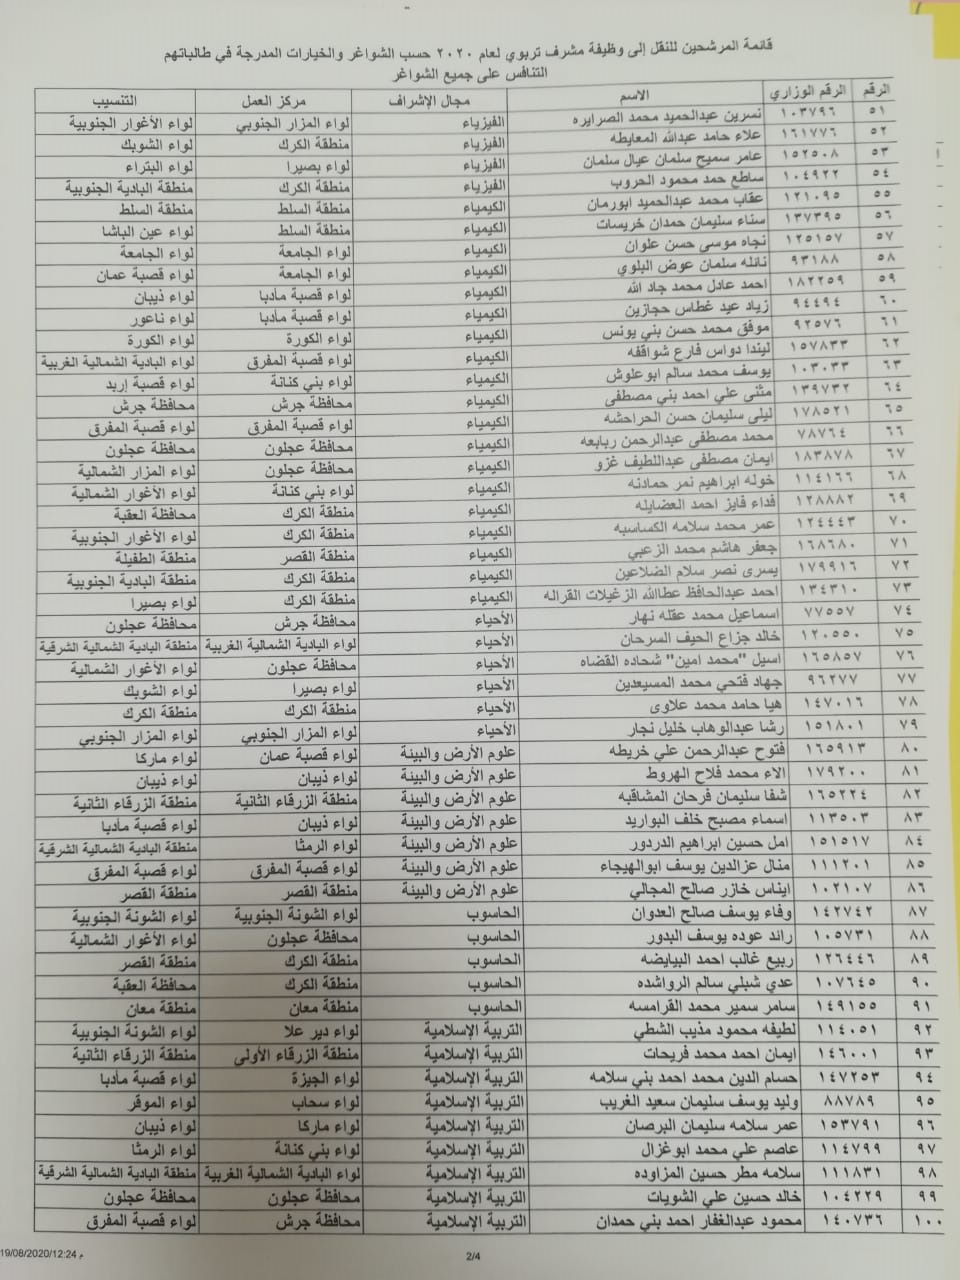 قائمة المرشحين للنقل إلى وظيفة مشرف تربوي لعام ٢٠٢٠ حسب الشواغر والخيارات المدرجة في طالباتهم
التنافس على جميع الشواغر
الرقم الرقم الوزاري الاسم مجال الإشراف مركز العمل التنسيب
٥١ ١٠٣٧٩٦ نسرين عبدالحميد محمد الصرايره الفيزياء لواء المزار الجنوبي لواء الأغوار الجنوبية
٥٢ ١٦١٧٧٦ علاء حامد عبدالله المعايطه الفيزياء منطقة الكرك لواء الشوبك
٥٣ ١٥٢٥٠٨ عامر سميح سلمان عيال سلمان الفيزياء لواء بصيرا لواء البتراء
٥٤ ١٠٤٩٢٢ ساطع حمد محمود الحروب الفيزياء منطقة الكرك منطقة البادية الجنوبية
٥٥ ١٢١٠٩٥ عقاب محمد عبدالحميد ابورمان الكيمياء منطقة السلط منطقة السلط
٥٦ ١٣٧٣٩٥ سناء سليمان حمدان خريسات الكيمياء منطقة السلط لواء عين الباشا
٥٧ ١٢٥١٥٧ نجاه موسى حسن علوان الكيمياء لواء الجامعة لواء الجامعة
٥٨ ٩٣١٨٨ نائله سلمان عوض البلوي الكيمياء لواء الجامعة لواء قصبة عمان
٥٩ ١٨٢٢٥٩ احمد عادل محمد جاد الله الكيمياء لواء قصبة مادبا لواء ذيبان
٦٠ ٩٤٤٩٤ زياد عيد غطاس حجازين الكيمياء لواء قصبة مأدبا لواء ناعور
٦١ ٩٢٥٧٦ موفق محمد حسن بني يونس الكيمياء لواء الكورة لواء الكورة
٦٢ ١٥٧٨٣٣ ليندا دواس فارع شواقفه الكيمياء لواء قصبة المفرق لواء البادية الشمالية الغربية
٦٣ ١٠٣٠٣٣ يوسف محمد سالم ابوعلوش الكيمياء لواء بني كنانة لواء قصبة إربد
٦٤ ١٣٩٧٣٢ مثنى علي احمد بني مصطفى الكيمياء محافظة جرش محافظة جرش
٦٥ ١٧٨٥٢١ ليلى سليمان حسن الحراحشه الكيمياء لواء قصبة المفرق لواء قصبة المفرق
٦٦ ٧٨٧٦٤ محمد مصطفى عبدالرحمن ربابعه الكيمياء محافظة عجلون محافظة عجلون
٦٧ ١٨٣٨٧٨ ايمان مصطفى عبداللطيف غزو الكيمياء محافظة عجلون لواء المزار الشمالية
٦٨ ١١٤١٦٦ خوله ابراهيم نمر حمادنه الكيمياء لواء بني كنانة لواء الأغوار الشمالية
٦٩ ١٢٨٨٨٢ فداء فايز احمد العضايله الكيمياء منطقة الكرك محافظة العقبة
٧٠ ١٢٤٤٤٣ عمر محمد سلامه الكساسبه الكيمياء منطقة الكرك لواء الأغوار الجنوبية
٧١ ١٦٨٦٨٠ جعفر هاشم محمد الزعبي الكيمياء منطقة القصر منطقة الطفيلة
٧٢ ١٧٩٩١٦ يسرى نصر سلام الضلاعين الكيمياء منطقة الكرك منطقة البادية الجنوبية
٧٣ ١٣٤٣١٠ احمد عبدالحافظ عطاالله الزغيلات القراله الكيمياء منطقة الكرك لواء بصيرا
٧٤ ٧٧٥٥٧ اسماعيل محمد عقله نهار الأحياء محافظة جرش محافظة عجلون
٧٥ ١٢٠٥٥٠ خالد جزاع الحيف السرحان الأحياء لواء البادية الشمالية الغربية منطقة البادية الشمالية الشرقية
٧٦ ١٦٥٨٥٧ اسيل "محمد امين" شحاده القضاه الأحياء محافظة عجلون لواء الأغوار الشمالية
٧٧ ٩٦٢٧٧ جهاد فتحي محمد المسيعدين الأحياء لواء بصيرا لواء الشوبك
٧٨ ١٤٧٠١٦ هيا حامد محمد علاوى الأحياء منطقة الكرك منطقة الكرك
٧٩ ١٥١٨٠١ رشا عبدالوهاب خليل نجار الأحياء لواء المزار الجنوبي لواء المزار الجنوبي
٨٠ ١٦٥٩١٣ فتوح عبدالرحمن علي خريطه علوم الأرض والبيئة لواء قصبة عمان لواء ماركا
٨١ ١٧٩٢٠٠ الاء محمد فلاح الهروط علوم الأرض والبيئة لواء ذيبان لواء ذيبان
٨٢ ١٦٥٢٢٤ شفا سليمان فرحان المشاقبه علوم الأرض والبيئة منطقة الزرقاء الثانية منطقة الزرقاء الثانية
٨٣ ١١٣٥٠٣ اسماء مصبح خلف البواريد علوم الأرض والبيئة لواء ذيبان لواء قصبة مأدبا
٨٤ ١٥١٥١٧ امل حسين ابراهيم الدردور علوم الأرض والبيئة لواء الرمثا منطقة البادية الشمالية الشرقية
٨٥ ١١١٢٠١ منال عزالدين يوسف ابوالهيجاء علوم الأرض والبيئة لواء قصبة المفرق لواء قصبة المفرق
٨٦ ١٠٢١٠٧ ايناس خازر صالح المجالي علوم الأرض والبيئة منطقة القصر منطقة القصر
٨٧ ١٤٢٧٤٢ وفاء يوسف صالح العدوان الحاسوب لواء الشونة الجنوبية لواء الشونة الجنوبية
٨٨ ١٠٥٧٣١ رائد عوده يوسف البدور الحاسوب محافظة عجلون لواء الأغوار الشمالية
٨٩ ١٢٦٤٤٦ ربيع غالب احمد البيايضه الحاسوب منطقة الكرك منطقة القصر
٩٠ ١٠٧٦٤٥ عدي شبلي سالم الرواشده الحاسوب منطقة الكرك محافظة العقبة
٩١ ١٤٩١٥٥ سامر سمير محمد القرامسه الحاسوب منطقة معان منطقة معان
٩٢ ١١٤٠٥١ لطيفه محمود مذيب الشطي التربية الإسلامية لواء دير علا لواء الشونة الجنوبية
٩٣ ١٤٦٠٠١ ايمان احمد محمد فريحات التربية الإسلامية منطقة الزرقاء الأولى منطقة الزرقاء الثانية
٩٤ ١٤٧٢٥٣ حسام الدين محمد احمد بني سلامه التربية الإسلامية لواء الجيزة لواء قصبة مأدبا
٩٥ ٨٨٧٨٩ وليد يوسف سليمان سعيد الغريب التربية الإسلامية لواء سحاب لواء الموقر
٩٦ ١٥٣٧٩١ عمر سلامه سليمان البرصان التربية الإسلامية لواء ماركا لواء ذيبان
٩٧ ١١٤٧٩٩ عاصم علي محمد ابوغزال التربية الإسلامية لواء بني كنانة لواء الرمثا
٩٨ ١١١٨٣١ سلامه مطر حسين المزاوده التربية الإسلامية لواء البادية الشمالية الغربية منطقة البادية الشمالية الشرقية
٩٩ ١٠٤٢٢٩ خالد حسين علي الشويات التربية الإسلامية محافظة عجلون محافظة عجلون
١٠٠ ١٤٠٧٣٦ محمود عبدالغفار احمد بني حمدان التربية الإسلامية محافظة جرش لواء قصبة المفرق
2/4
19/08/2020/12:24 م